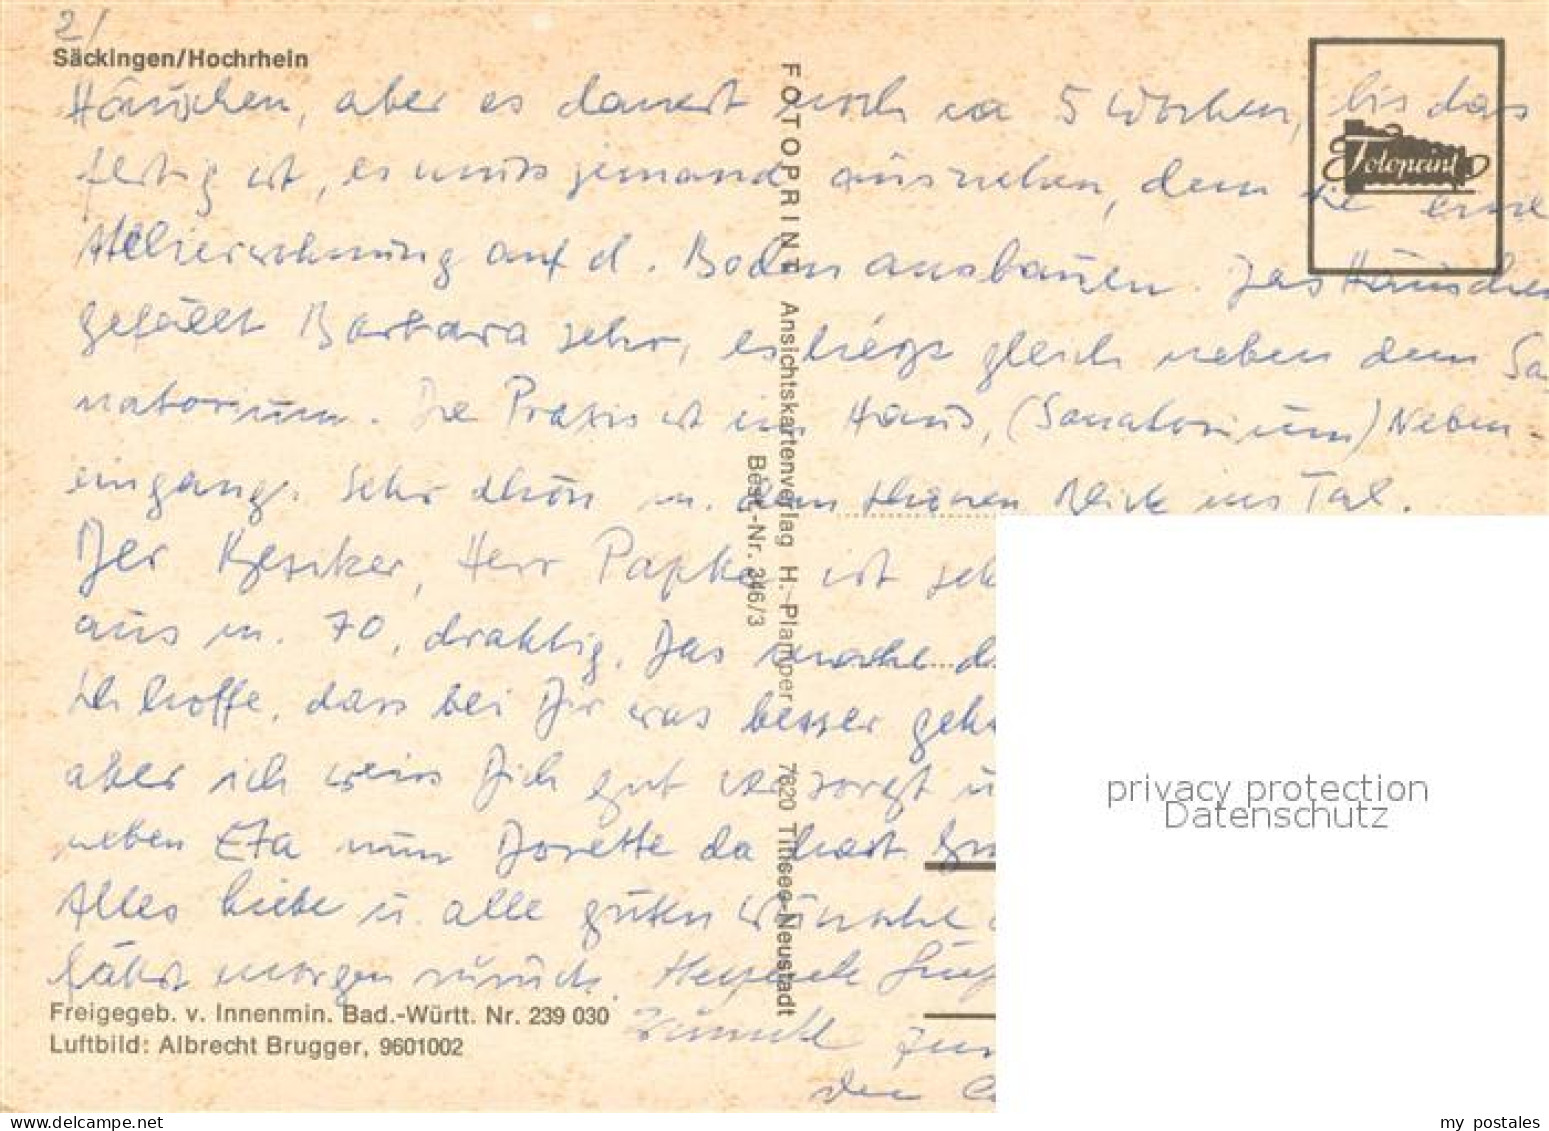 2/
Säckingen/Hochrhein
Häuschen, aber es dauert noch ca 5 Wochen, bis das
fertig ist, es muss jemand ausziehen, dem sie eine
Atelierwohnung auf d. Boden ausbauen. Das Häuschen
gefällt Barbara sehr, es liegt gleich neben dem Sa-
natorium. Die Praxis ist im Haus, (Sanatorium) Neben-
eingang. Sehr schön m. dem Blick ins Tal.
Der Besitzer, Herr Papke ist
aus m. 70, drahtig. Das
Ich hoffe, dass bei Dir was besser geht
aber ich weiss Dich gut versorgt u
neben Eta nun Dorette da hast.
Alles Liebe u. alle guten Wünsche
fährt morgen zurück. Herzliche Grüße
der
FOTOPRINT Ansichtskartenverlag H. Plamper 7820 Titisee-Neustadt
Best.-Nr. 346/3
Fotoprint
Freigegeb. v. Innenmin. Bad.-Württ. Nr. 239 030
Luftbild: Albrecht Brugger, 9601002
privacy protection
Datenschutz
my postales